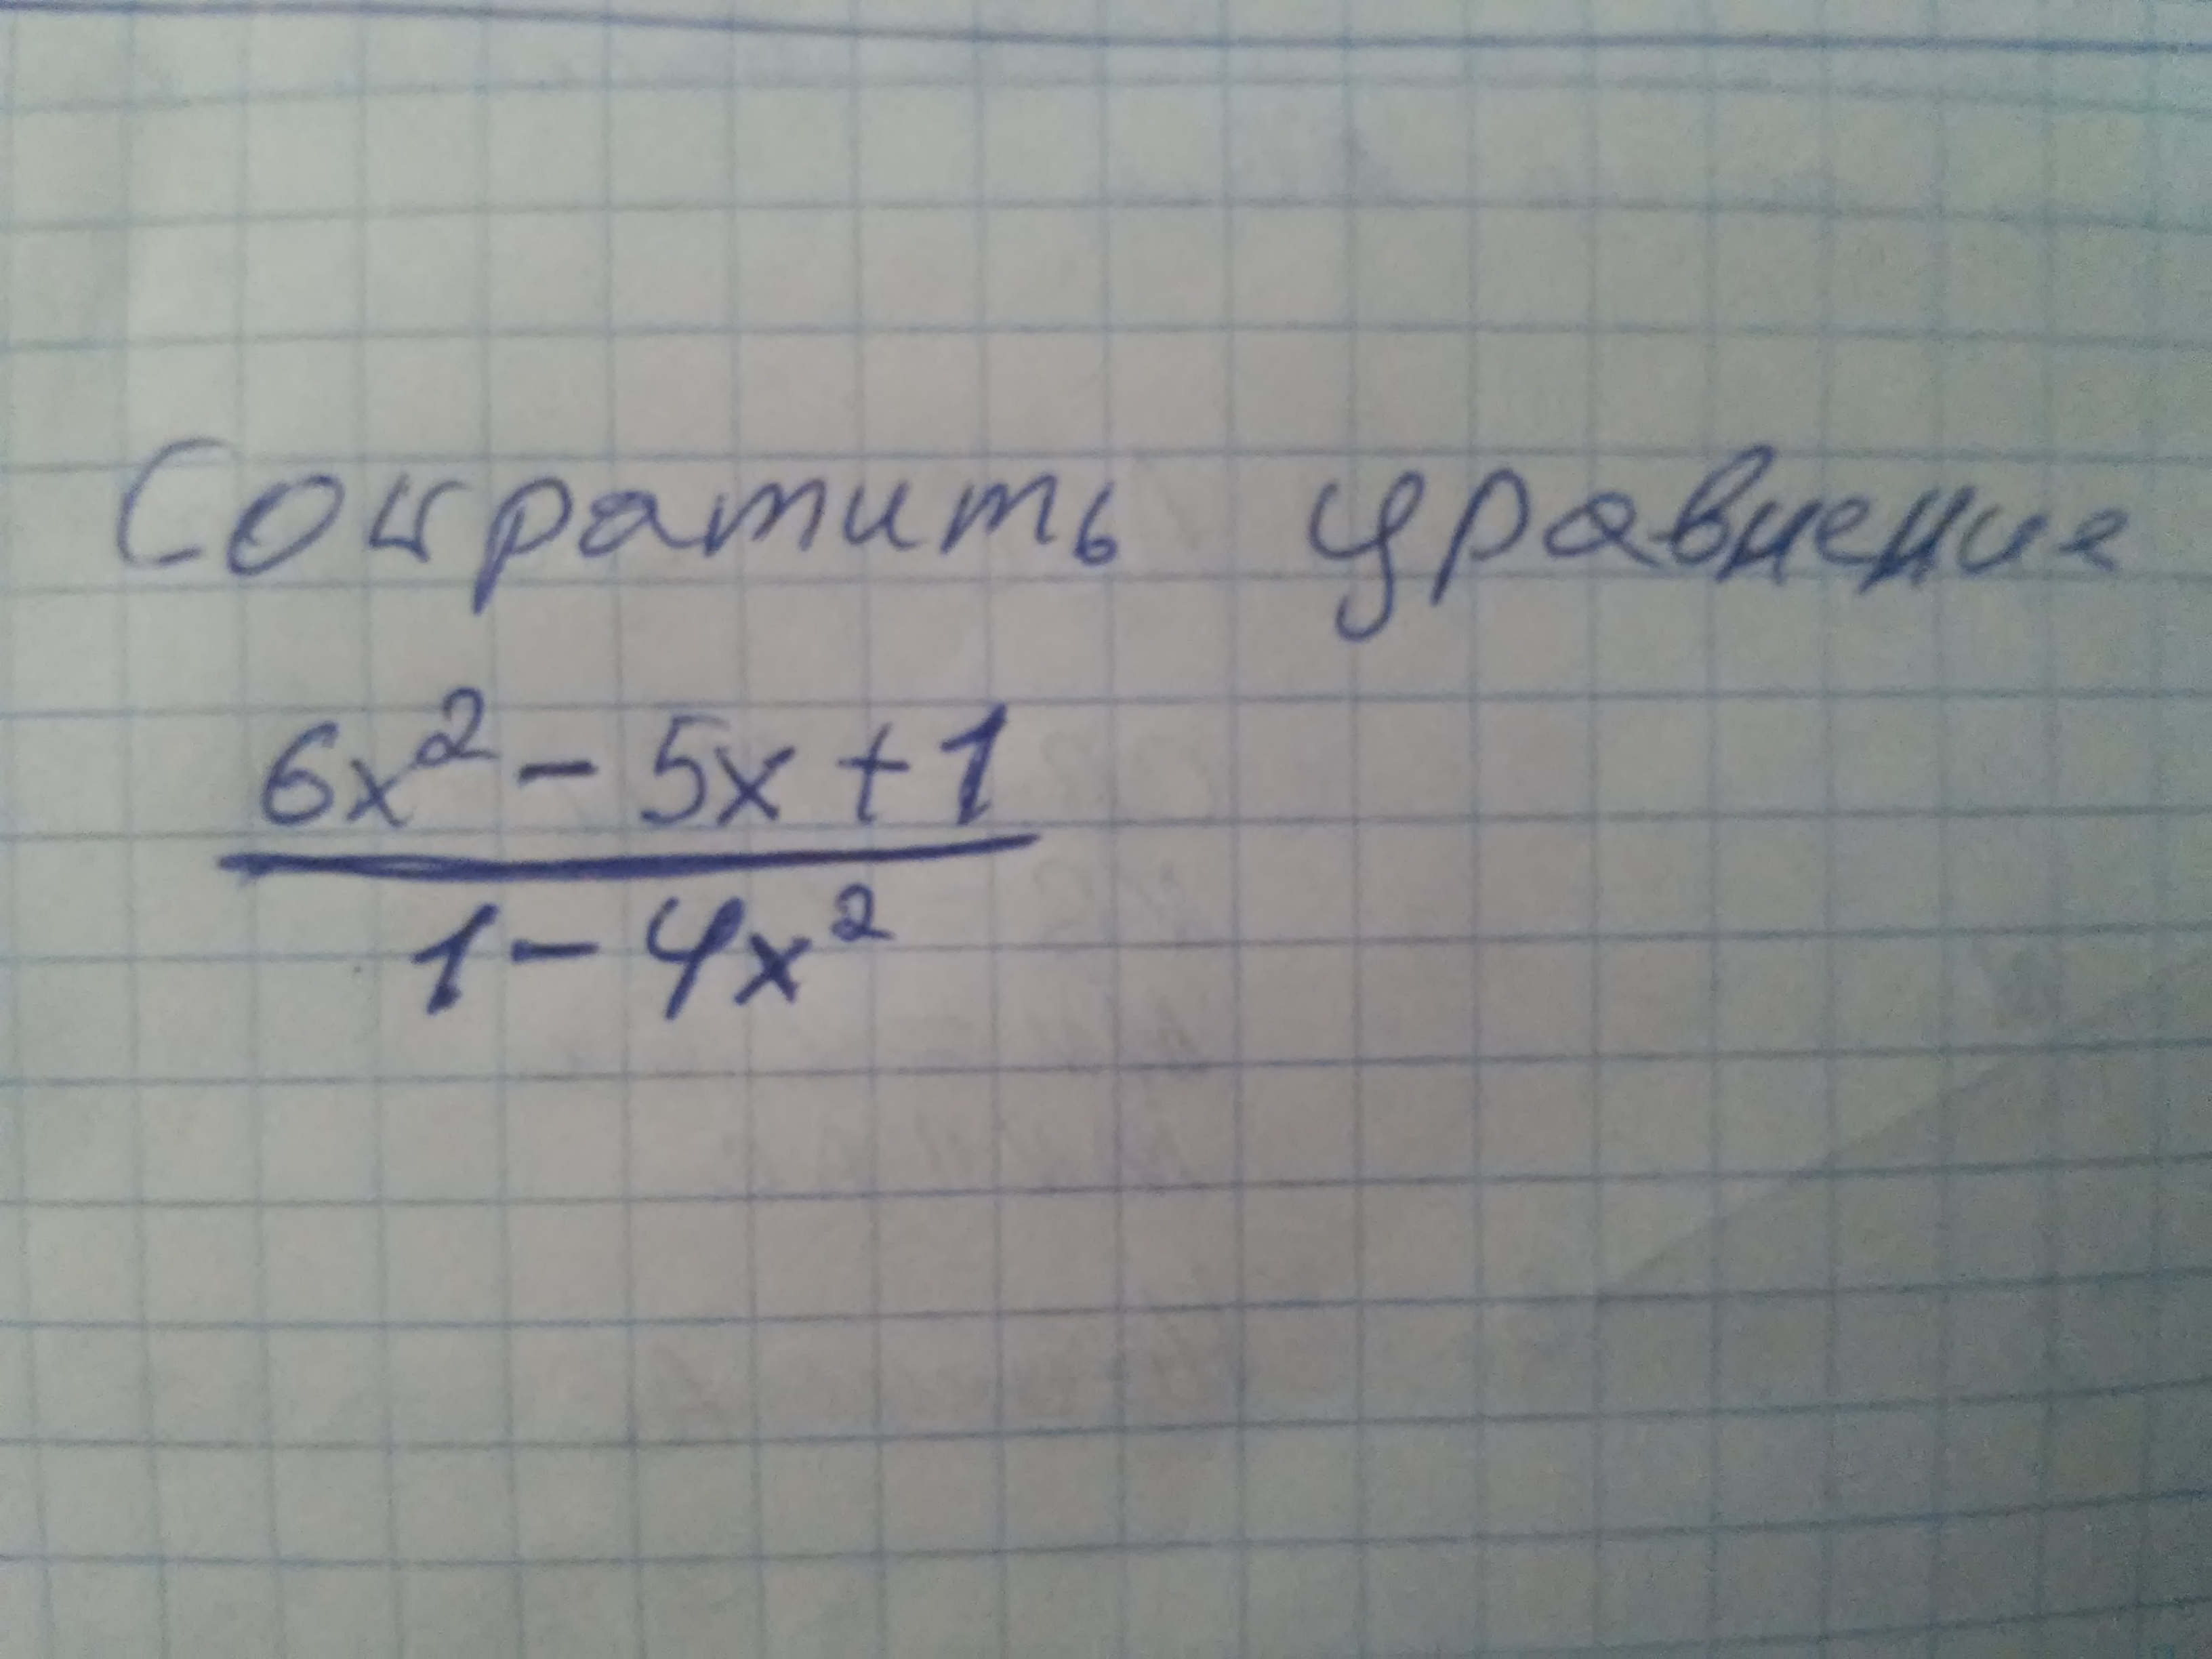 Сократить уравнение
6x² - 5x + 1
1 - 4x²